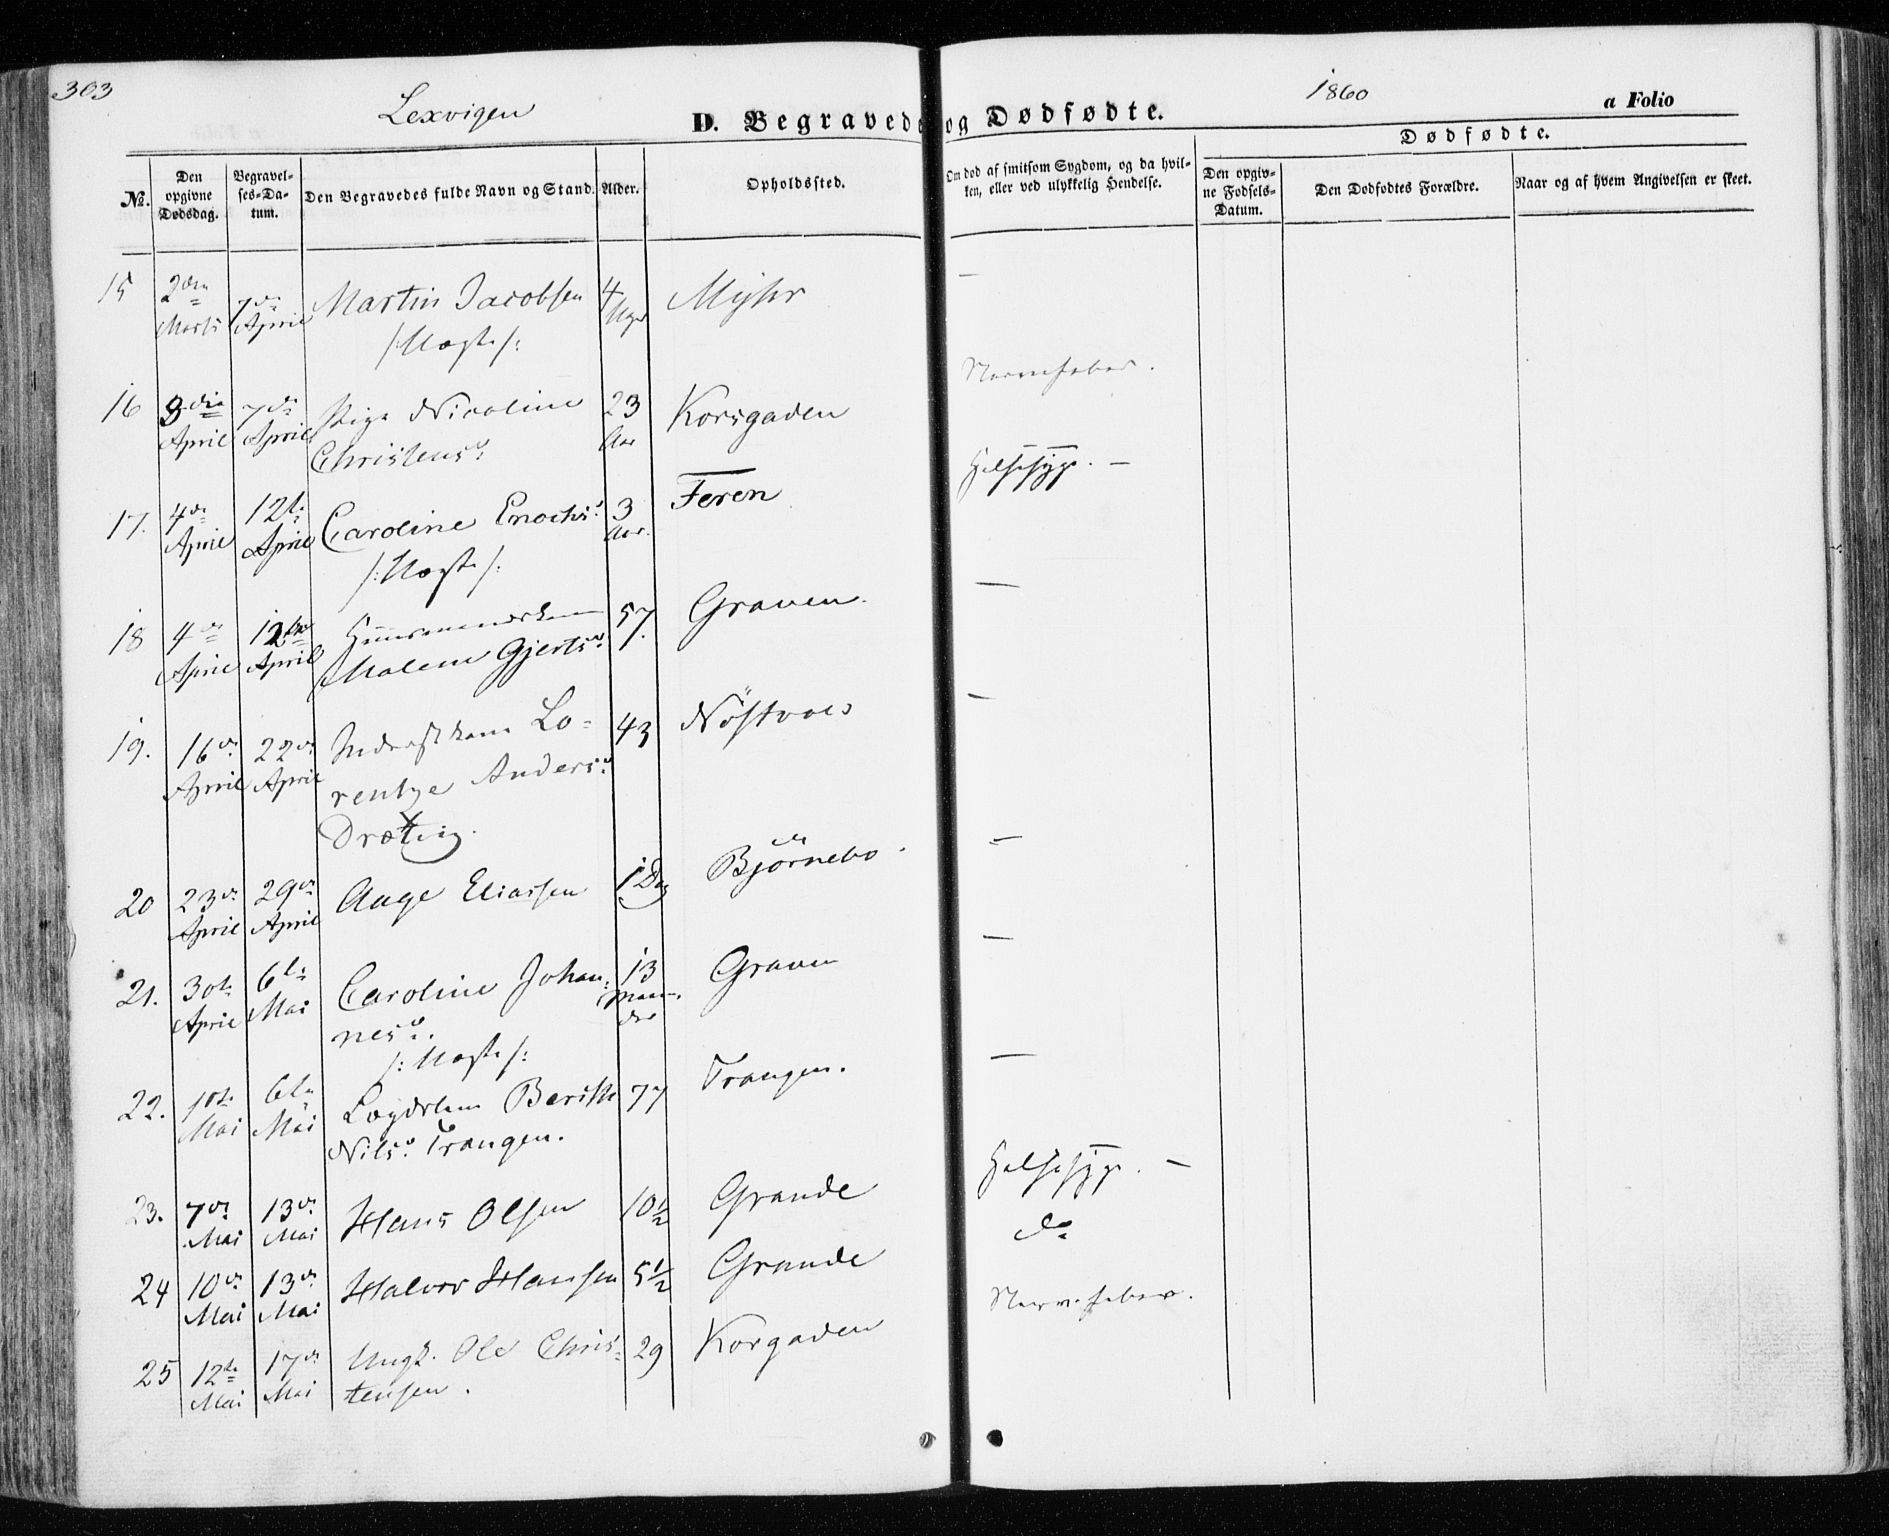 303
Lexvigen
1860
D. Begravede og Dødfødte.
a Folio
No.
Den opgivne Dødsdag.
Begravelses-Datum.
Den Begravedes fulde Navn og Stand.
Alder.
Opholdssted.
Om død af smitsom Sygdom, og da hvilken, eller ved ulykkelig Hendelse.
Dødfødte.
Den opgivne Fødsels-Datum.
Den Dødfødtes Forældre.
Naar og af hvem Angivelsen er skeet.
15 2den Marts 7de April Martin Jacobsen 4 Uger Myhr —
16 3die April 7de April Pige Nicoline 23 Aar Korsgaden Nervefeber.
Christensd:
17. 4de April 12te April Caroline Enochsd: 3 Aar. Feren Halssyge. —
18 4de April 12te April Huusmandskone 57. Graven —
Malene Gjertsd:
19. 16de April 22de April Inderstkone Lo- 43 Nöstvoes —
rentze Andersd:
20 23de April 29de April Aage Eliassen 1 Dag Björnebo —
21. 30te April 6te Mai Caroline Johan- 13 Maaneder Graven —
nesd:
22. 1ste Mai 6te Mai Lægdslem Berith 77 Trangen. —
Nilsd: Trangen.
23. 7de Mai 13de Mai Hans Olsen 10½ Grande Halssyge. —
24 10de Mai 13de Mai Halvor Hansen 5½ Grande do
25 12te Mai 17de Mai Ungk. Ole Chris- 29 Korgaden Nervefeber.
tensen.